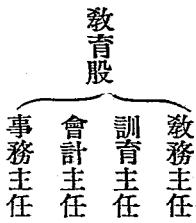 敎育股
敎務主任
訓育主任
會計主任
事務主任